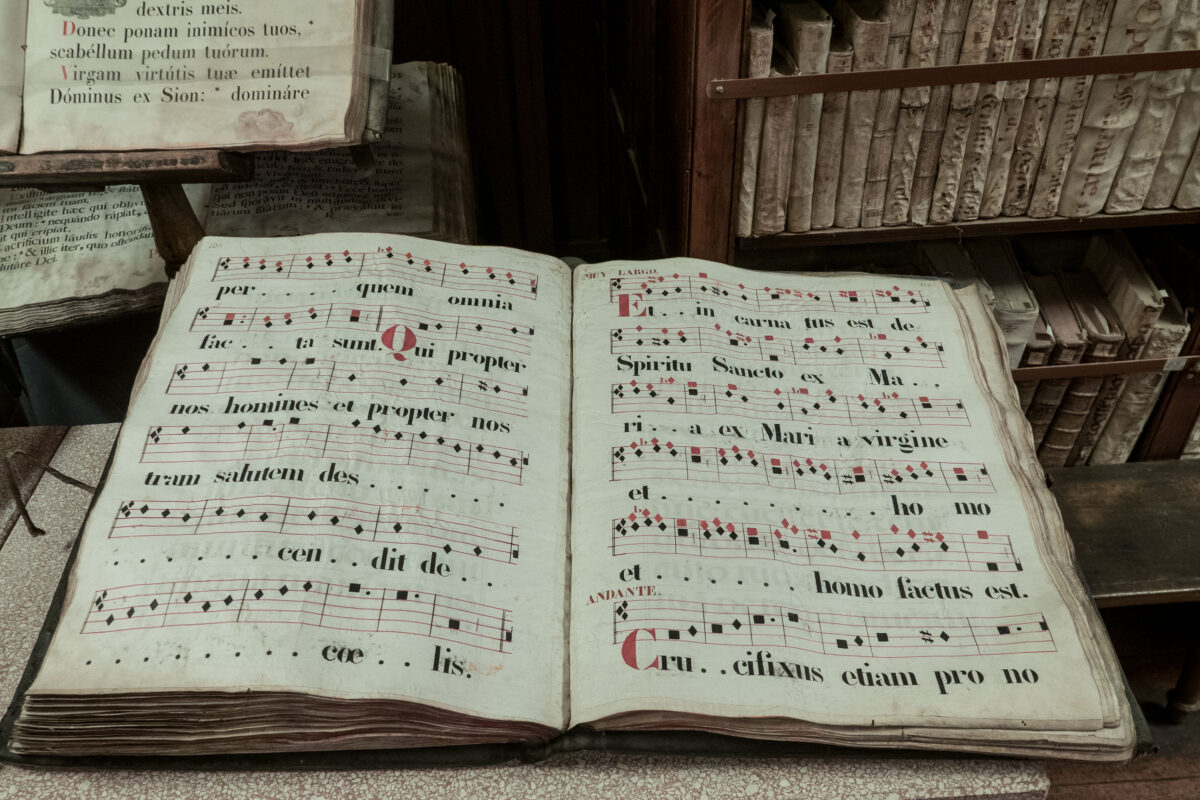 dextris meis.
Donec ponam inimícos tuos, *
scabéllum pedum tuórum.
Virgam virtútis tuæ emíttet
Dóminus ex Sion: * domináre
ntelligite hæc qui obliv
Deum: * nequándo rápiat,
qui erípiat.
acrifícium láudis honorif
* & illic iter, quo ostendam
lutáre Dei.
per . . . . quem omnia
fac . . ta sunt. Qui propter
nos homines et propter nos
tram salutem des . . . . . .
. . . . . . . cen . . dit de . . .
. . . . . . . . cœ . . lis.
MUY LARGO.
Et . . in carna tus est de
Spiritu Sancto ex Ma . . .
ri . . a ex Mari a virgine
et . . . . . . . . . . ho mo
et . . . . . . homo factus est.
ANDANTE.
Cru . . cifixus etiam pro no